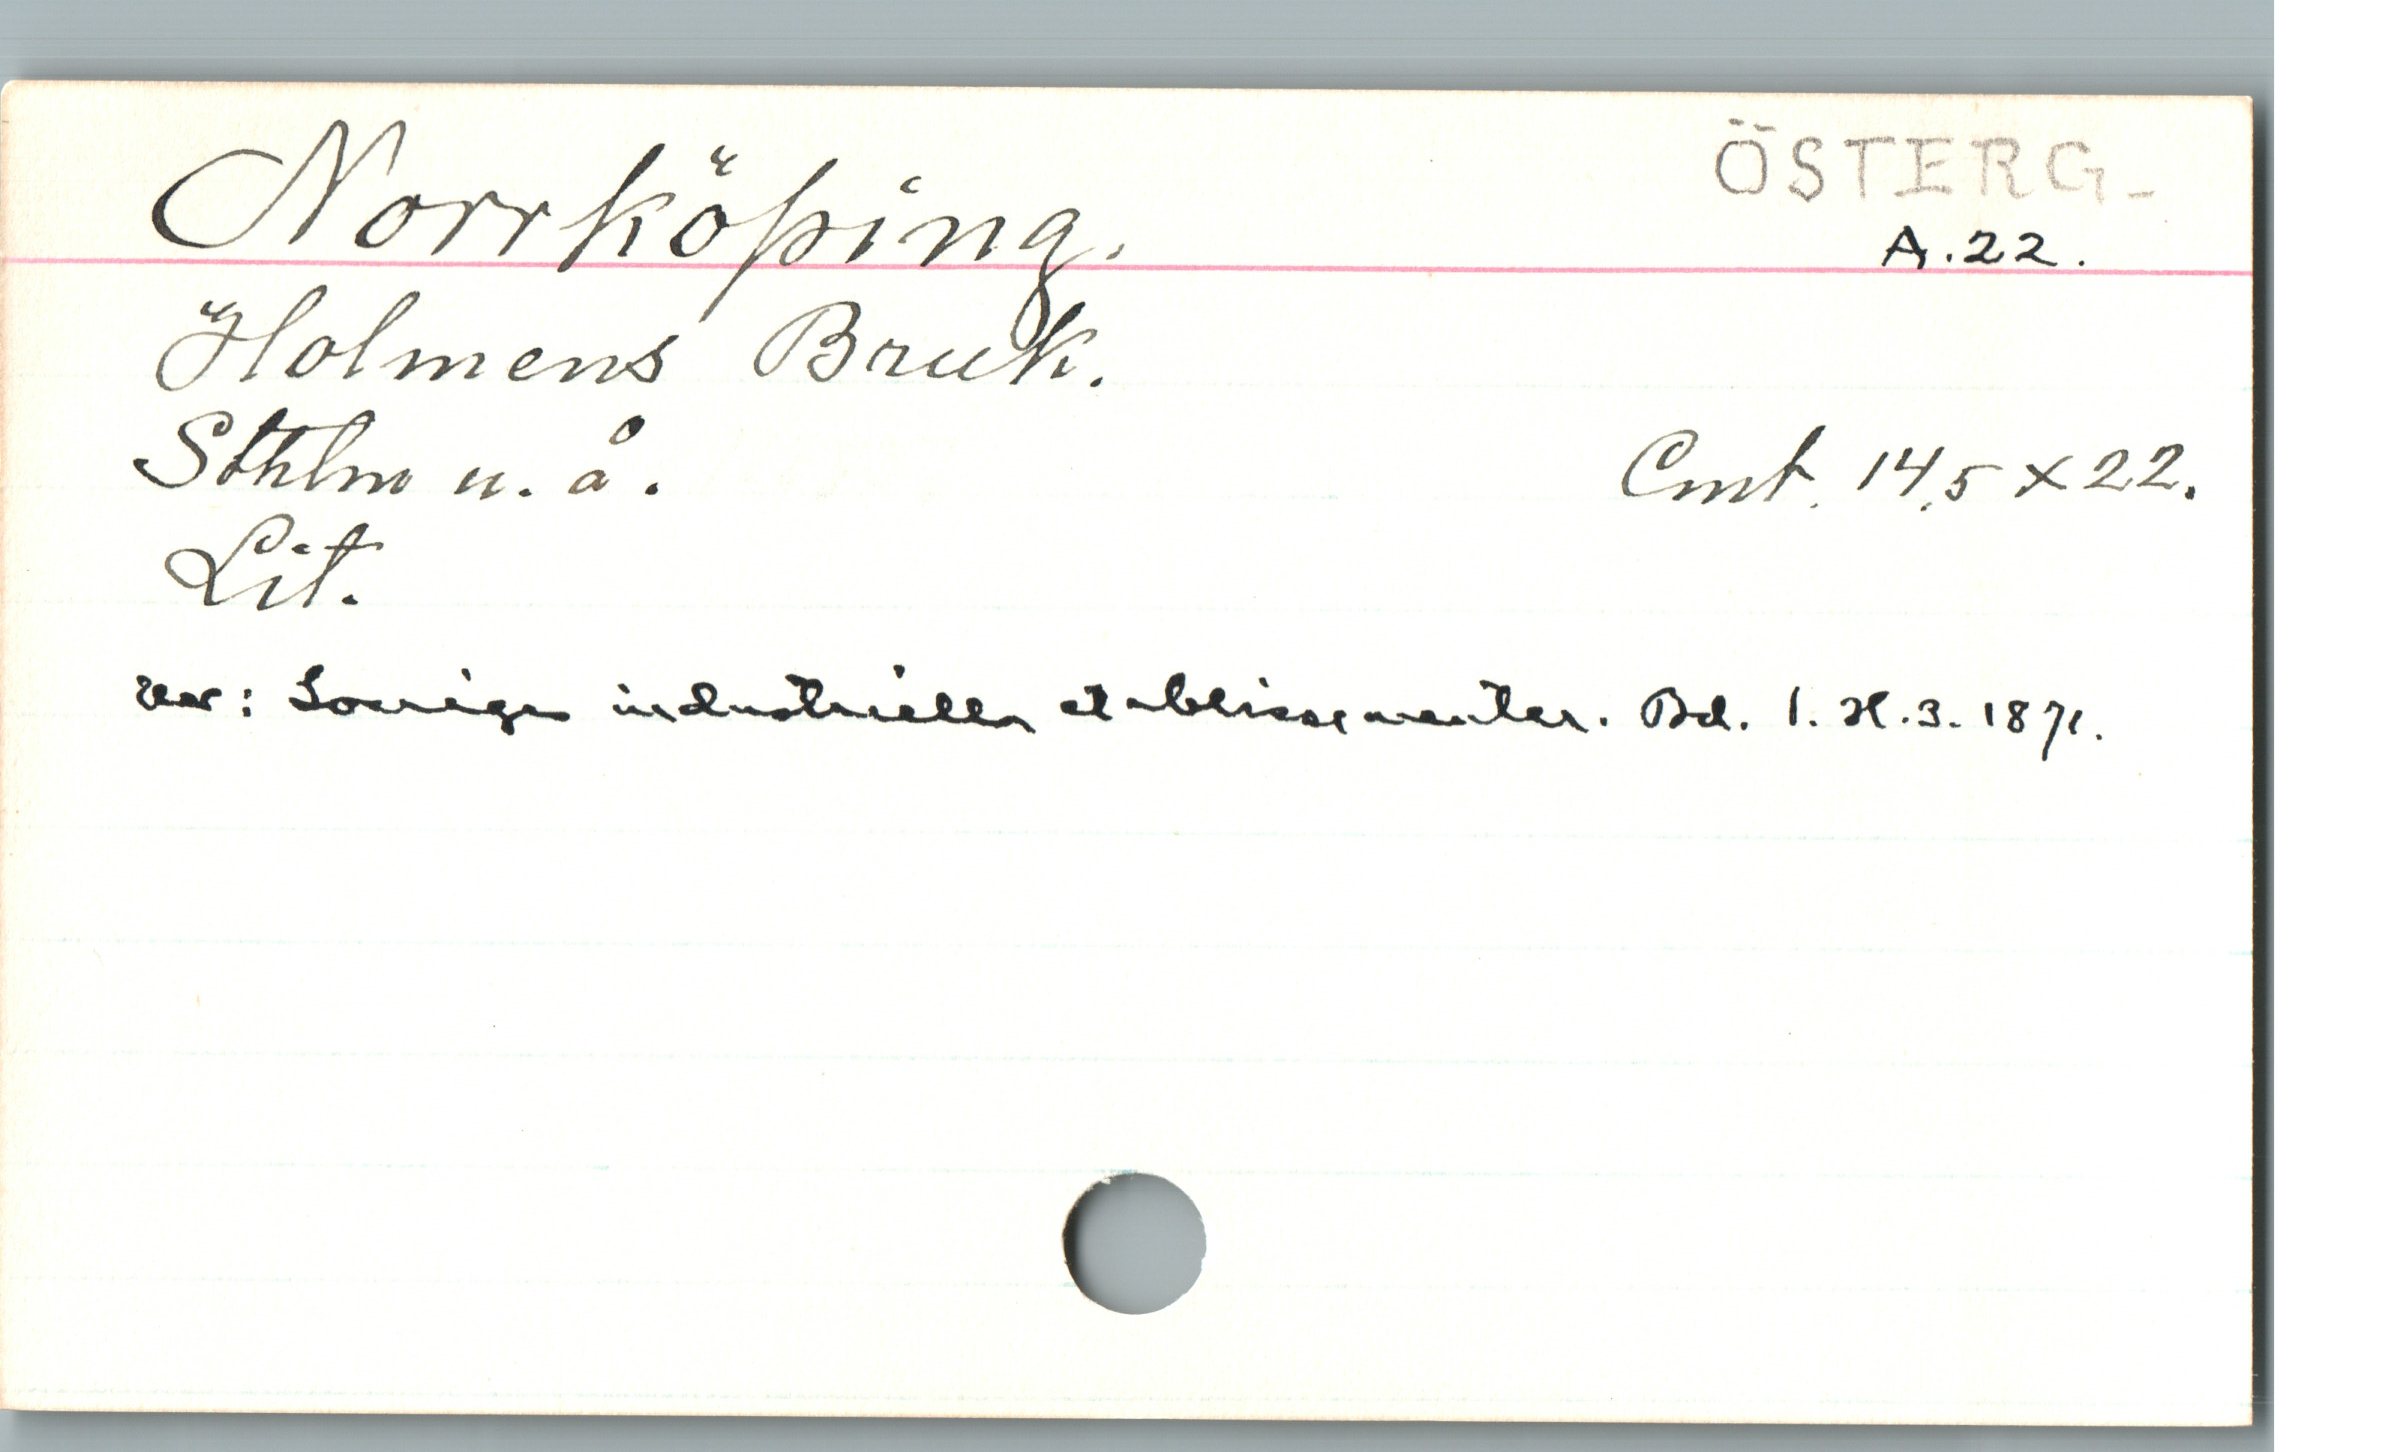 Norrköping.
ÖSTERG.
A.22.
Holmens Bruk.
Sthlm u. å.
Cmt. 14,5 x 22.
Lit.
Sveriges industriella etablissementer. Bd. 1. H. 3. 1871.